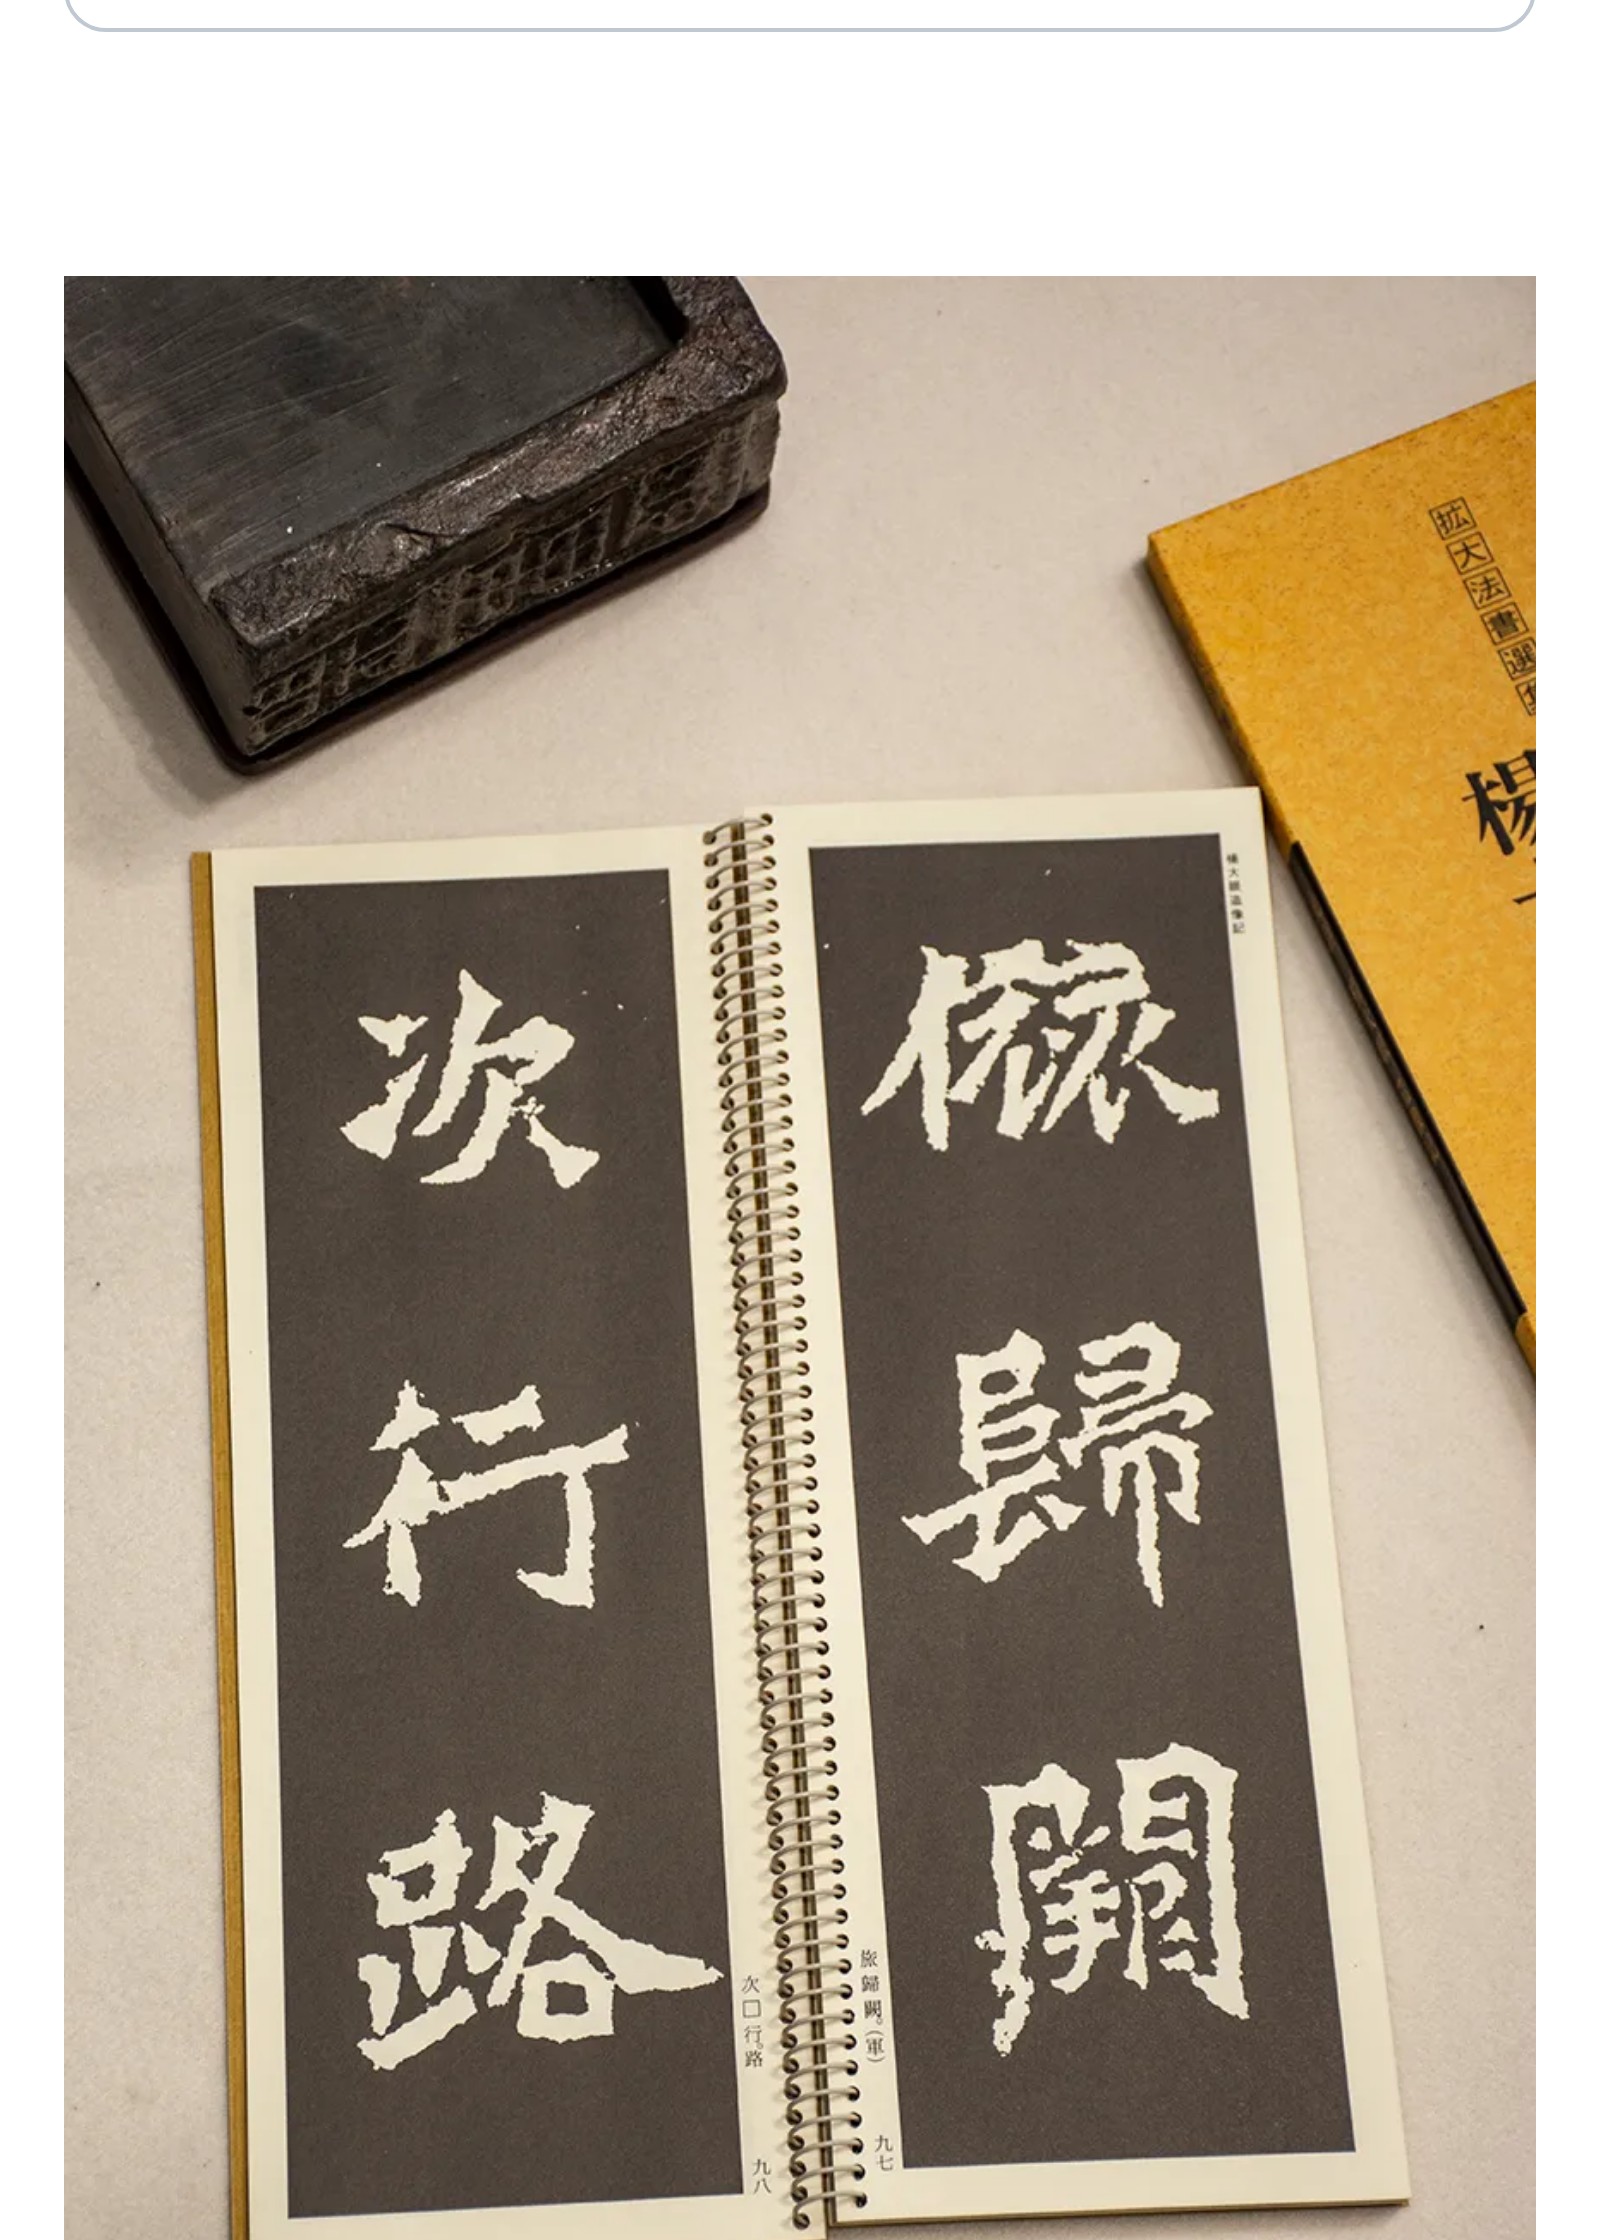 拡大法書選集
楊
楊大眼造像記
旅歸闕
旅歸闕。(軍)
九七
次行路
次□行。路
九八